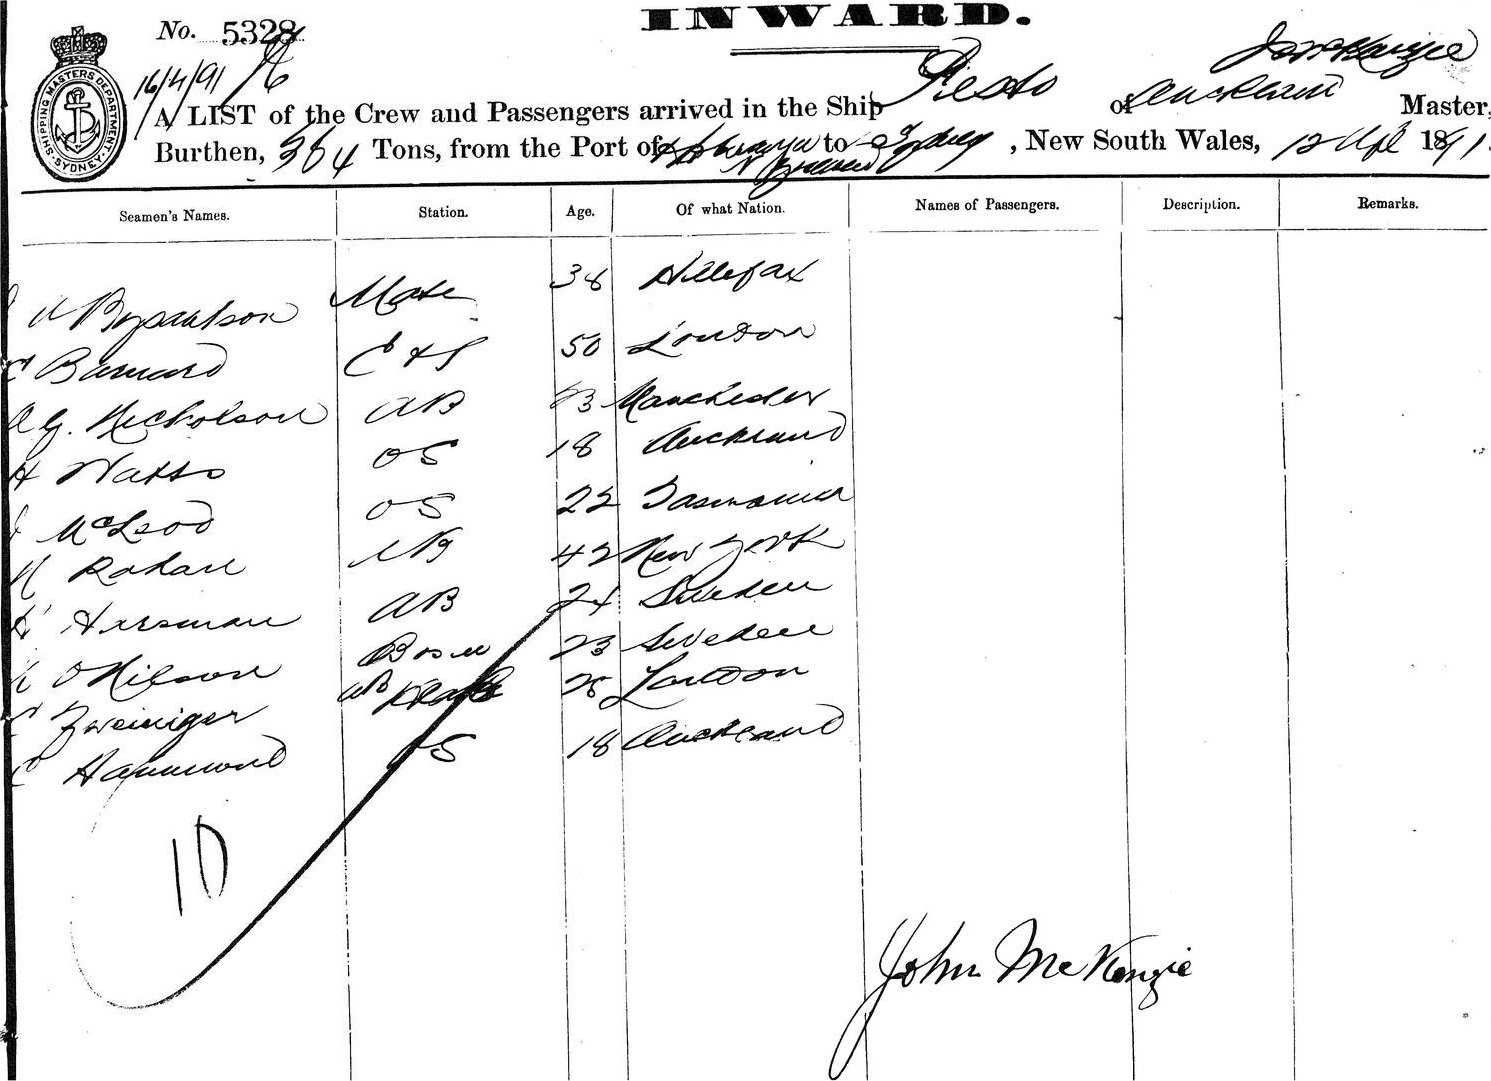 INWARD.
No. 5328
16/4/91
SHIPPING MASTERS DEPARTMENT SYDNEY
Jno McKenzie
A LIST of the Crew and Passengers arrived in the Ship Pesto of Auckland Master,
Burthen, 364 Tons, from the Port of to Sydney, New South Wales, 12 Apl 1891.
Seamen's Names. Station. Age. Of what Nation. Names of Passengers. Description. Remarks.
Mate 38 Hillefax
C Barnard C & S 50 London
A G. Nicholson AB 23 Manchester
H Watts OS 18 Auckland
J McLeod OS 22 Tasmania
Rohan AB 42 New York
Hersman AB 24 Sweden
O Nilsson Bosun 23 Sweden
C Zweiniger AB 28 London
C Hammond OS 18 Auckland
10
John McKenzie